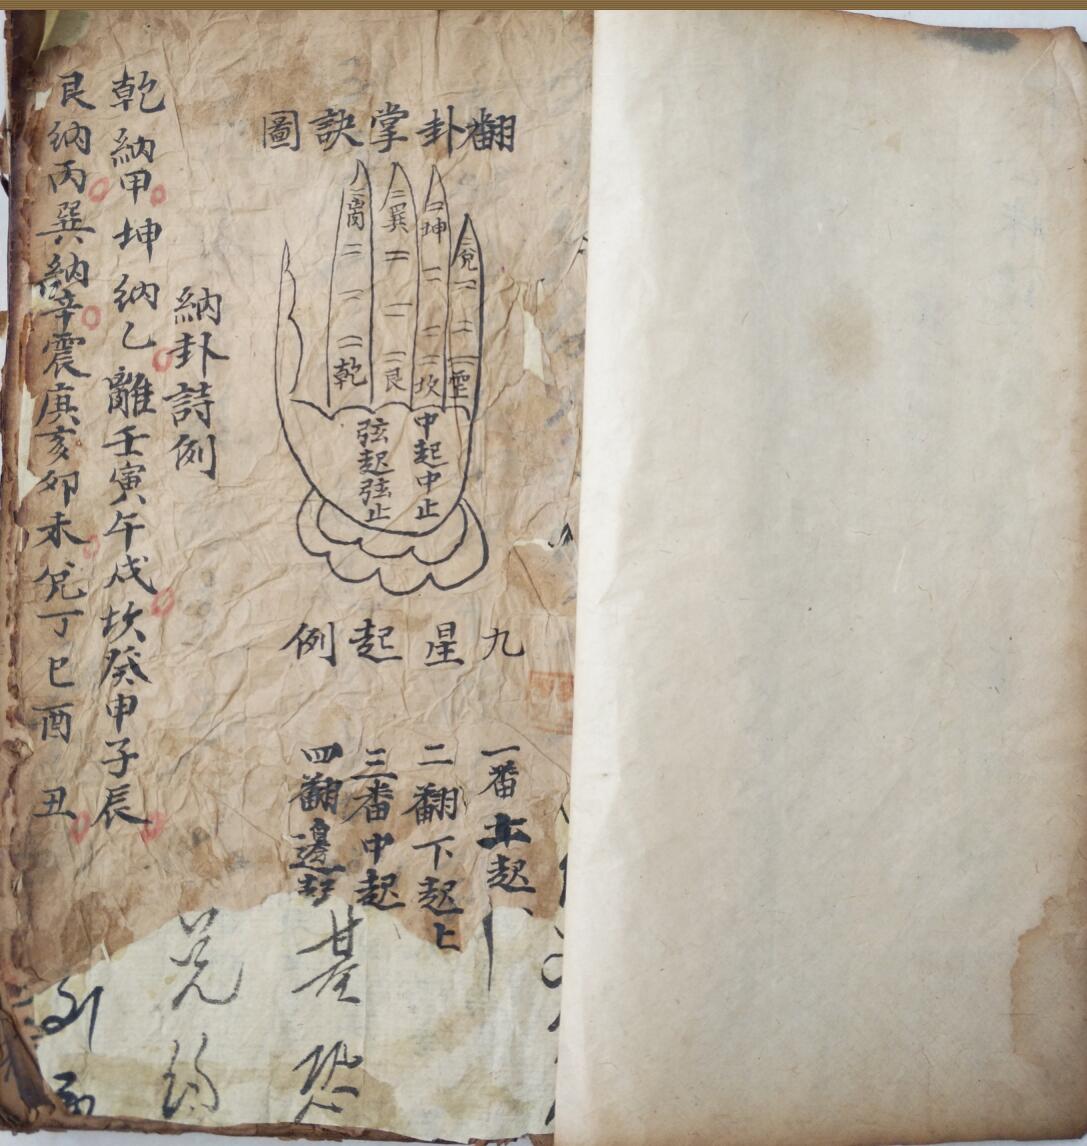 翻卦掌訣圖
兌
坤
巽
离
震
坎
艮
乾
中起中止
弦起弦止
九星起例
一番上起
二翻下起上
三番中起
四翻邊起
納卦詩例
乾納甲坤納乙離壬寅午戌坎癸申子辰
艮納丙巽納辛震庚亥卯未兌丁巳酉丑
甚恐